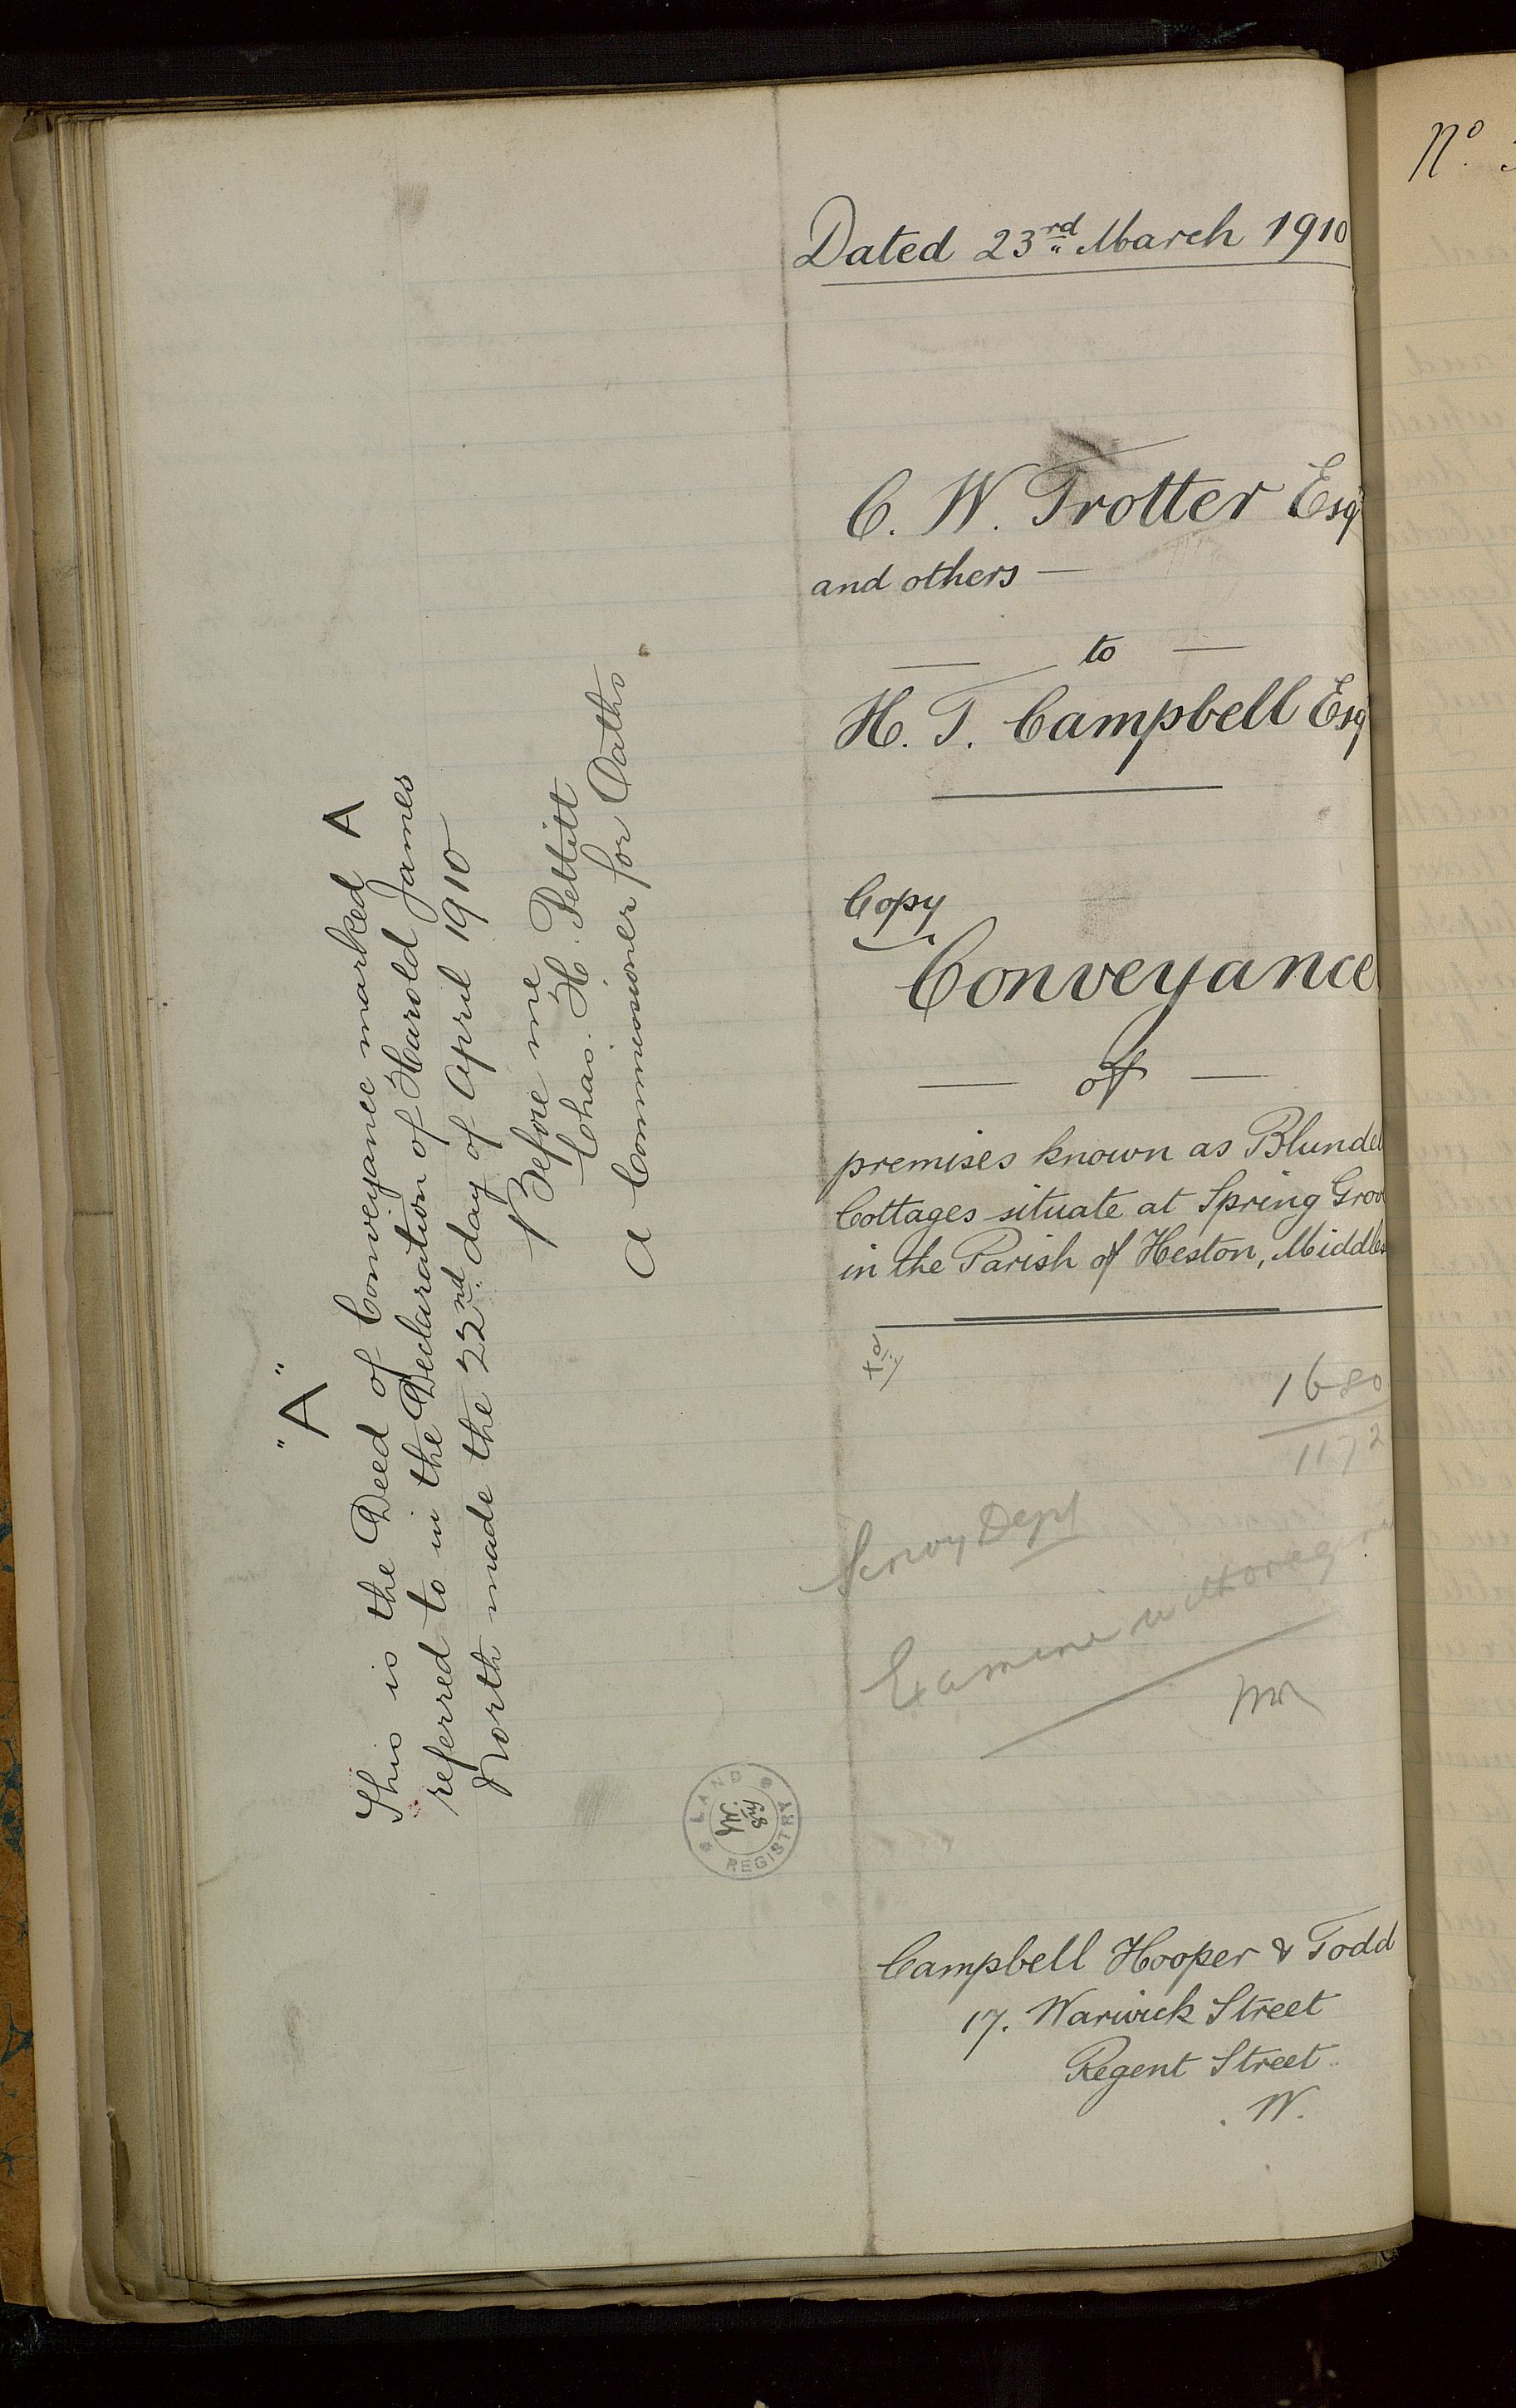 Dated 23rd March 1910
C. W. Trotter Esq
and others —
— to —
H. T. Campbell Esq
Copy
Conveyance
— of —
premises known as Blundel
Cottages situate at Spring Grov
in the Parish of Heston, Middles
1680
1172
Survey Dept
Examine
Campbell Hooper & Todd
17. Warwick Street
Regent Street
W.
"A"
This is the Deed of Conveyance marked A
referred to in the Declaration of Harold James
North made the 22nd day of April 1910
Before me
Chas. H. Pettitt
A Commissioner for Oaths
LAND REGISTRY
No